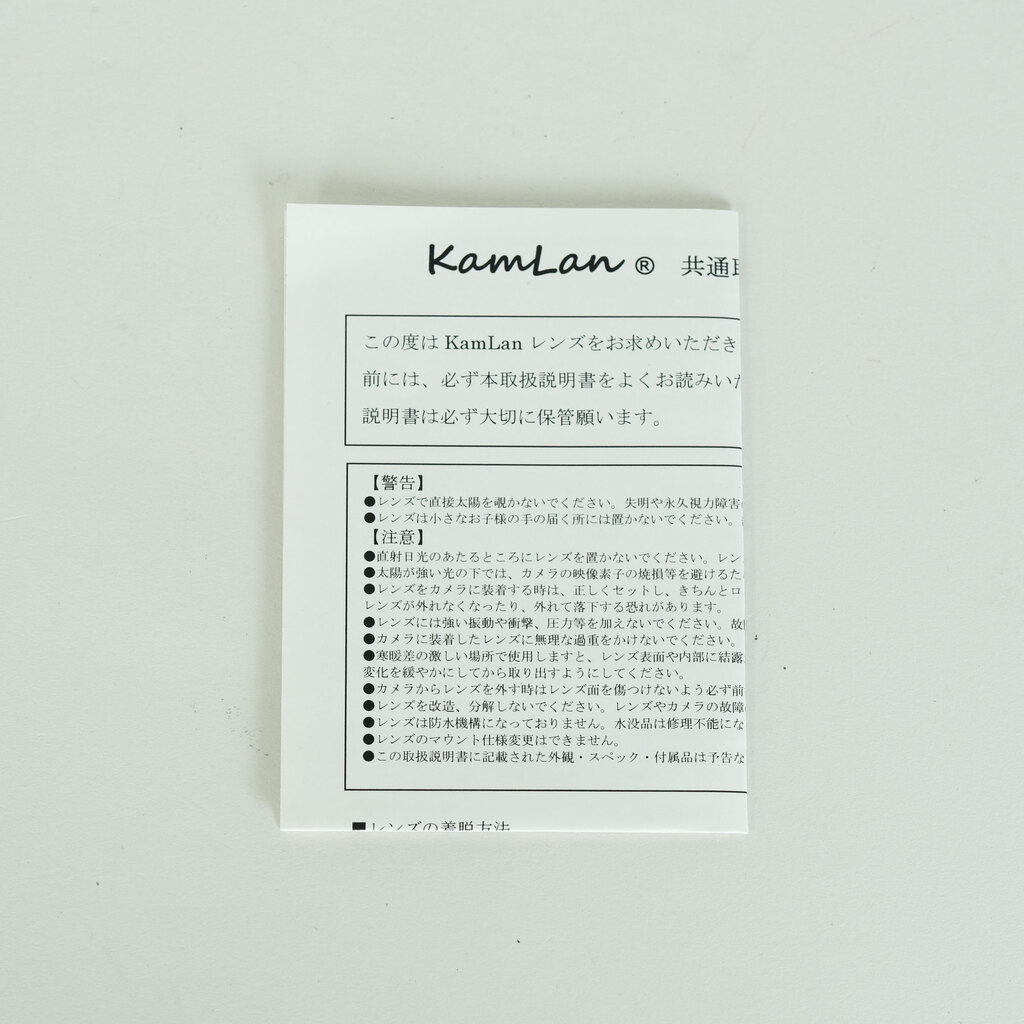 KamLan ® 共通
この度は KamLan レンズをお求めいただき
前には、必ず本取扱説明書をよくお読みいた
説明書は必ず大切に保管願います。
【警告】
●レンズで直接太陽を覗かないでください。失明や永久視力障害
●レンズは小さなお子様の手の届く所には置かないでください。
【注意】
●直射日光のあたるところにレンズを置かないでください。レン
●太陽が強い光の下では、カメラの映像素子の焼損等を避けるた
●レンズをカメラに装着する時は、正しくセットし、きちんとロ
レンズが外れなくなったり、外れて落下する恐れがあります。
●レンズには強い振動や衝撃、圧力等を加えないでください。故
●カメラに装着したレンズに無理な過重をかけないでください。
●寒暖差の激しい場所で使用しますと、レンズ表面や内部に結露
変化を緩やかにしてから取り出すようにしてください。
●カメラからレンズを外す時はレンズ面を傷つけないよう必ず前
●レンズを改造、分解しないでください。レンズやカメラの故障
●レンズは防水機構になっておりません。水没品は修理不能にな
●レンズのマウント仕様変更はできません。
●この取扱説明書に記載された外観・スペック・付属品は予告な
■レンズの着脱方法